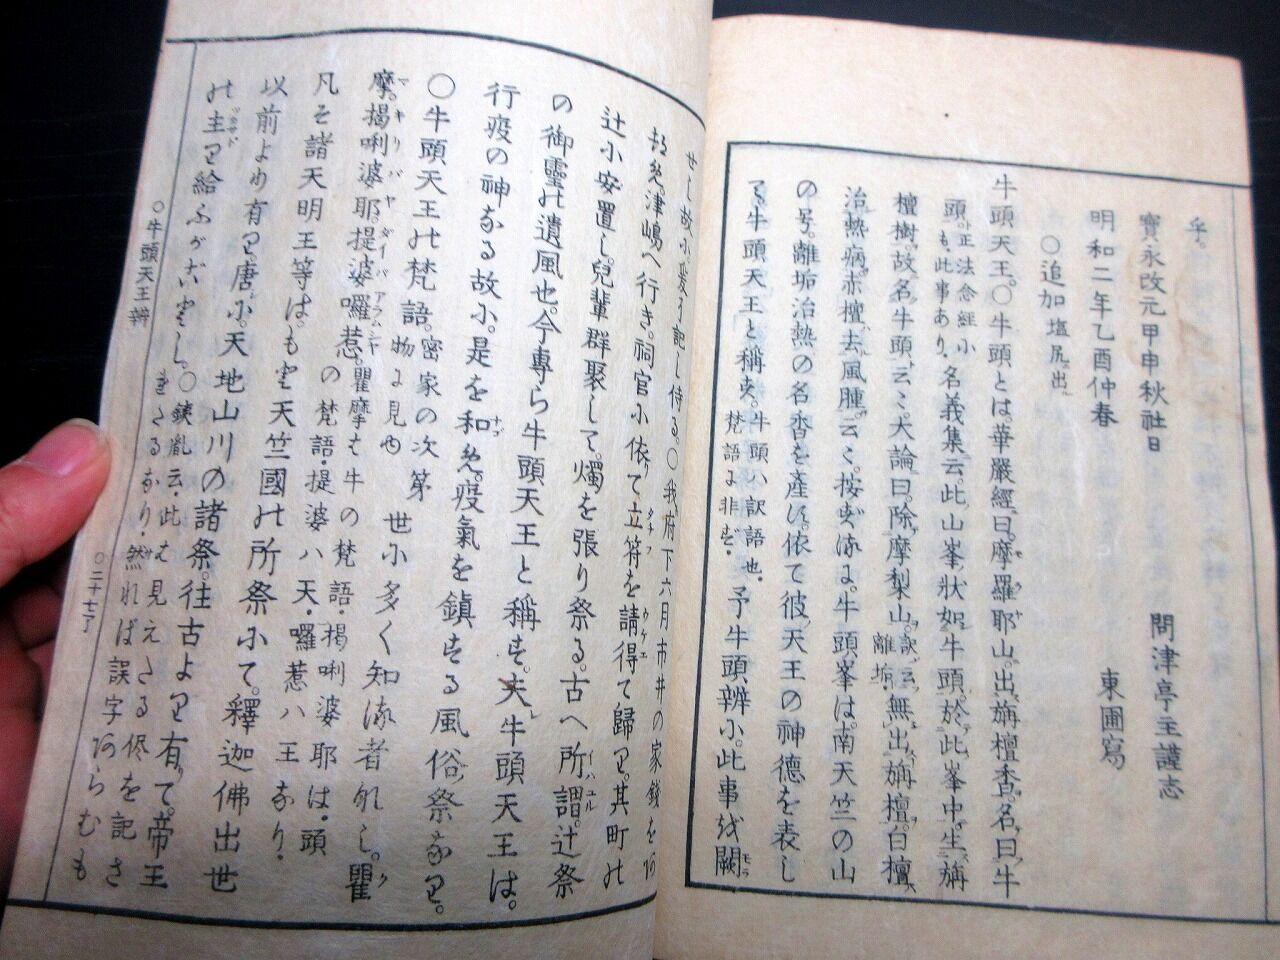 乎。
寳永改元甲申秋社日　問津亭主謹志
明和二年乙酉仲春　東圃寫
〇追加 塩尻ニ出
牛頭天王。〇牛頭とは。華嚴經曰。摩羅耶山。出旃檀香。名曰牛
頭。正法念經小も。此事あり。名義集云。此山峯状如牛頭。於此峯中。生旃
檀樹。故名牛頭云々。大論曰。除摩梨山。訳云離垢。無出旃檀。白檀
治熱病。赤檀去風腫云々。按ずるに。牛頭峯は。南天竺の山
の号。離垢治熱の名香を産す。依て彼天王の神徳を表し
て。牛頭天王と稱す。牛頭ハ訳語也。梵語に非ず。予牛頭辨小。此事を闕
せし故小。爰に記し侍る。〇我府下六月市井の家銭を
津嶋へ行き。祠官小依りて立符を請得て歸り。其町の
辻小安置し。兒輩群聚して。燭を張り祭る。古へ所謂辻祭
の御霊の遺風也。今専ら牛頭天王と稱す。夫牛頭天王は。
行疫の神なる故小。是を和め。疫氣を鎮する風俗祭なり。
〇牛頭天王の梵語。密家の次第物に見ゆ　世小多く知る者なし。瞿
摩。掲唎婆耶。提婆囉惹。瞿摩は牛の梵語・掲唎婆耶は。頭の梵語・提婆ハ天・囉惹ハ王なり・
凡そ諸天明王等は。もと天竺國の所祭小て。釋迦佛出世
以前より有り。唐小。天地山川の諸祭。往古より有て。帝王
の主り給ふがごとし。〇銕胤云・此は見えたる侭を記さ
れたるなり・然れば誤字あらむも
〇牛頭天王辨
〇二十七了